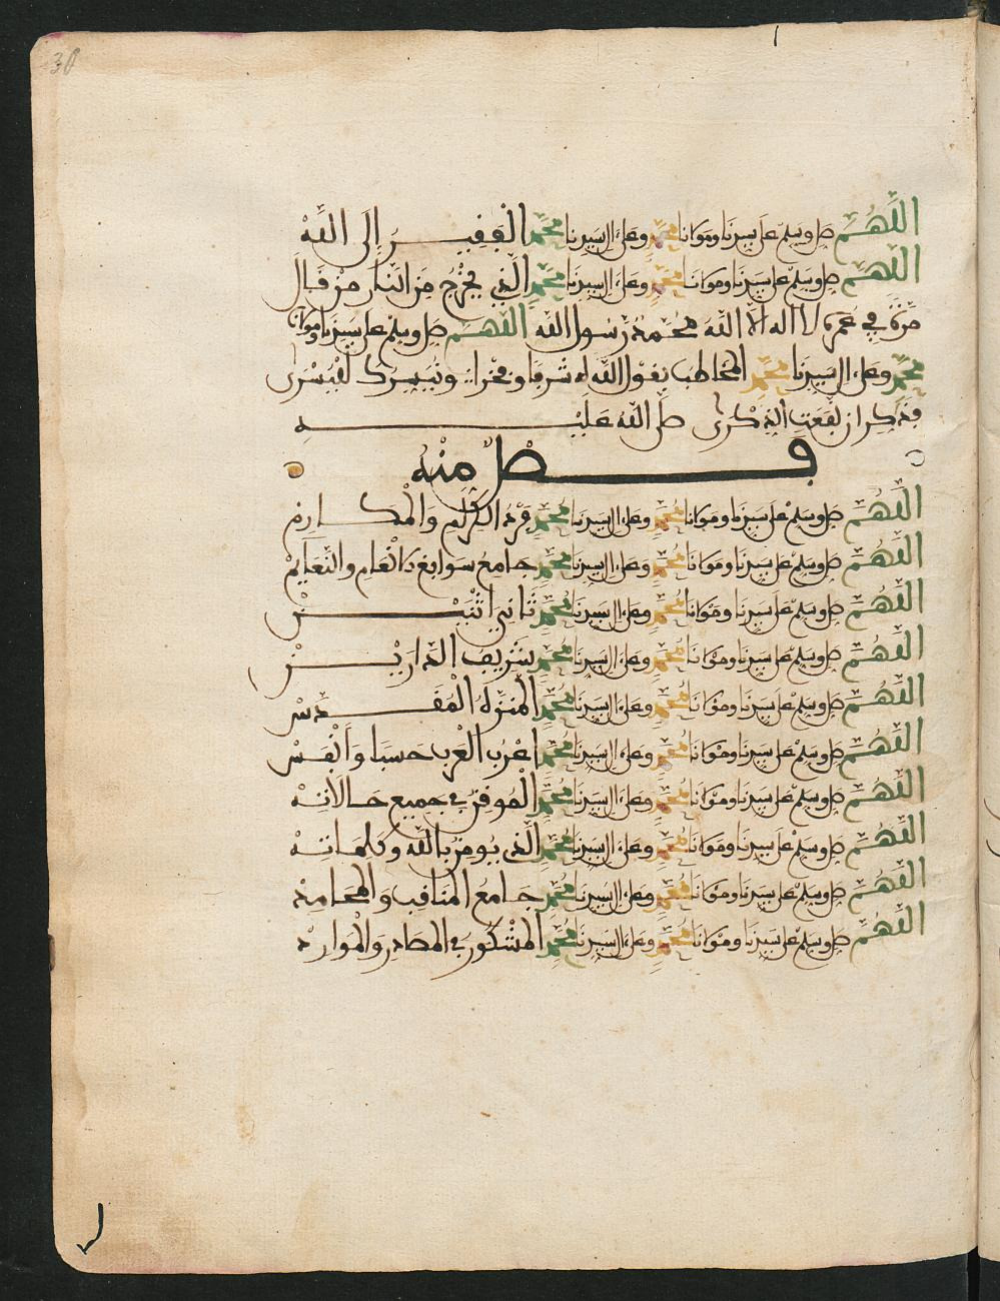 30
اللهم صل وسلم على سيدنا ومولانا محمد وعلى ءال سيدنا محمد الفقير إلى الله
اللهم صل وسلم على سيدنا ومولانا محمد وعلى ءال سيدنا محمد الذي يخرج من النار من قال
مرة في عمره لا اله الا الله محمد رسول الله اللهم صل وسلم على سيدنا ومولانا
محمد وعلى ءال سيدنا محمد المخاطب بقول الله له شرفا وفخرا ونيسرك لليسرى
فذكر ان نفعت الذكرى صلى الله عليه
فصل منه
اللهم صل وسلم على سيدنا ومولانا محمد وعلى ءال سيدنا محمد فرد الكرم والمكارم
اللهم صل وسلم على سيدنا ومولانا محمد وعلى ءال سيدنا محمد جامع سوابغ الانعام والنعايم
اللهم صل وسلم على سيدنا ومولانا محمد وعلى ءال سيدنا محمد ثاني اثنين
اللهم صل وسلم على سيدنا ومولانا محمد وعلى ءال سيدنا محمد شريف الدارين
اللهم صل وسلم على سيدنا ومولانا محمد وعلى ءال سيدنا محمد المنزه المقدس
اللهم صل وسلم على سيدنا ومولانا محمد وعلى ءال سيدنا محمد اعرب العرب حسبا وأنفس
اللهم صل وسلم على سيدنا ومولانا محمد وعلى ءال سيدنا محمد الموفق في جميع حالاته
اللهم صل وسلم على سيدنا ومولانا محمد وعلى ءال سيدنا محمد الذي يومن بالله وكلماته
اللهم صل وسلم على سيدنا ومولانا محمد وعلى ءال سيدنا محمد جامع المناقب والمحامد
اللهم صل وسلم على سيدنا ومولانا محمد وعلى ءال سيدنا محمد المشكور في المصادر والموارد